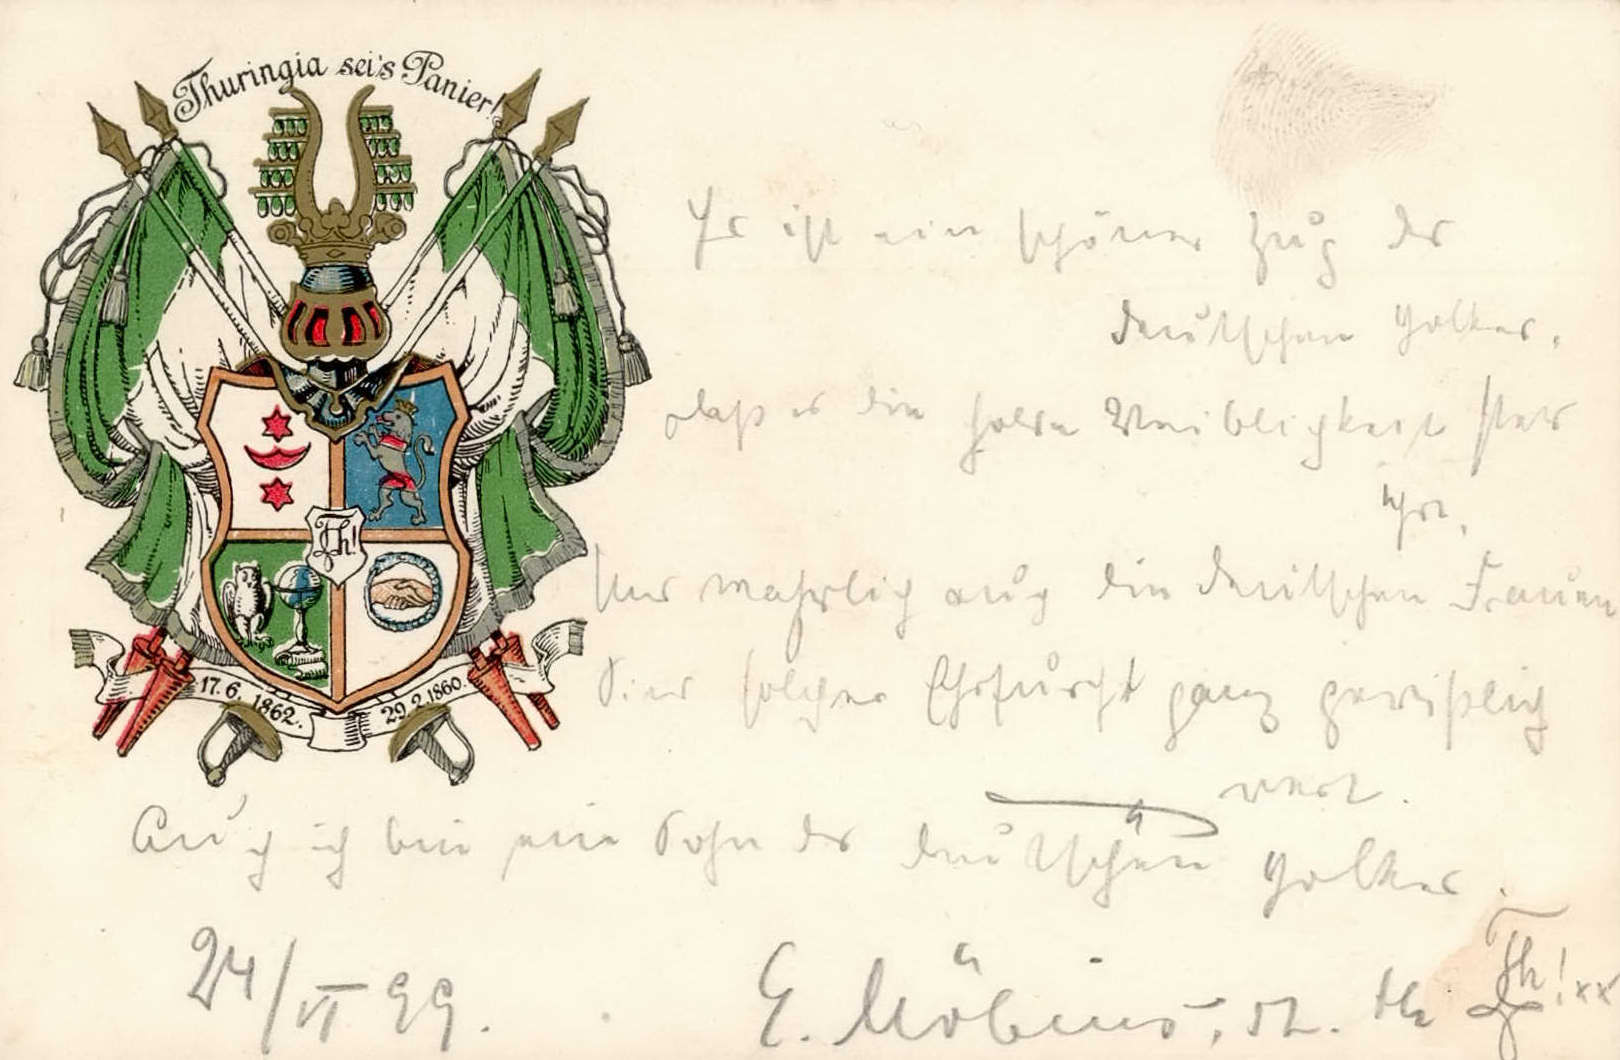 Thuringia sei's Panier!
Th!
17.6. 1862. 29.2.1860.
Es ist ein schöner Zug des
deutschen Volkes,
daß es die holde Weiblichkeit stets
ehrt,
Und wahrlich auch die deutschen Frauen
Sind solcher Ehrfurcht ganz gewißlich
wert.
Auch ich bin ein Sohn des deutschen Volkes.
24/VI 99.
E. Möbius, st. th Th! xx